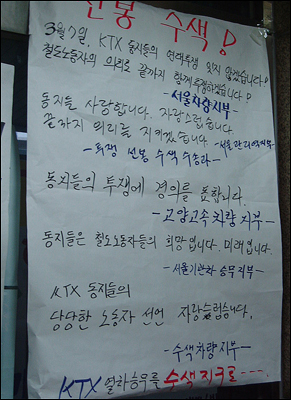 선봉 수색!
3월7일, KTX 동지들의 연대투쟁 잊지 않겠습니다!
철도노동자의 의리로 끝까지 함께 투쟁하겠습니다!
-서울차량지부-
동지들 사랑합니다. 자랑스럽습니다
끝까지 의리를 지키겠습니다
-투쟁 선봉 수색
동지들의 투쟁에 경의를 표합니다.
-고양고속차량지부-
동지들은 철도노동자들의 희망입니다. 미래입니다.
-서울기관차 승무지부-
KTX 동지들의
당당한 노동자 선언 자랑스럽습니다.
-수색차량지부-
KTX 열차승무를 수색지구로----